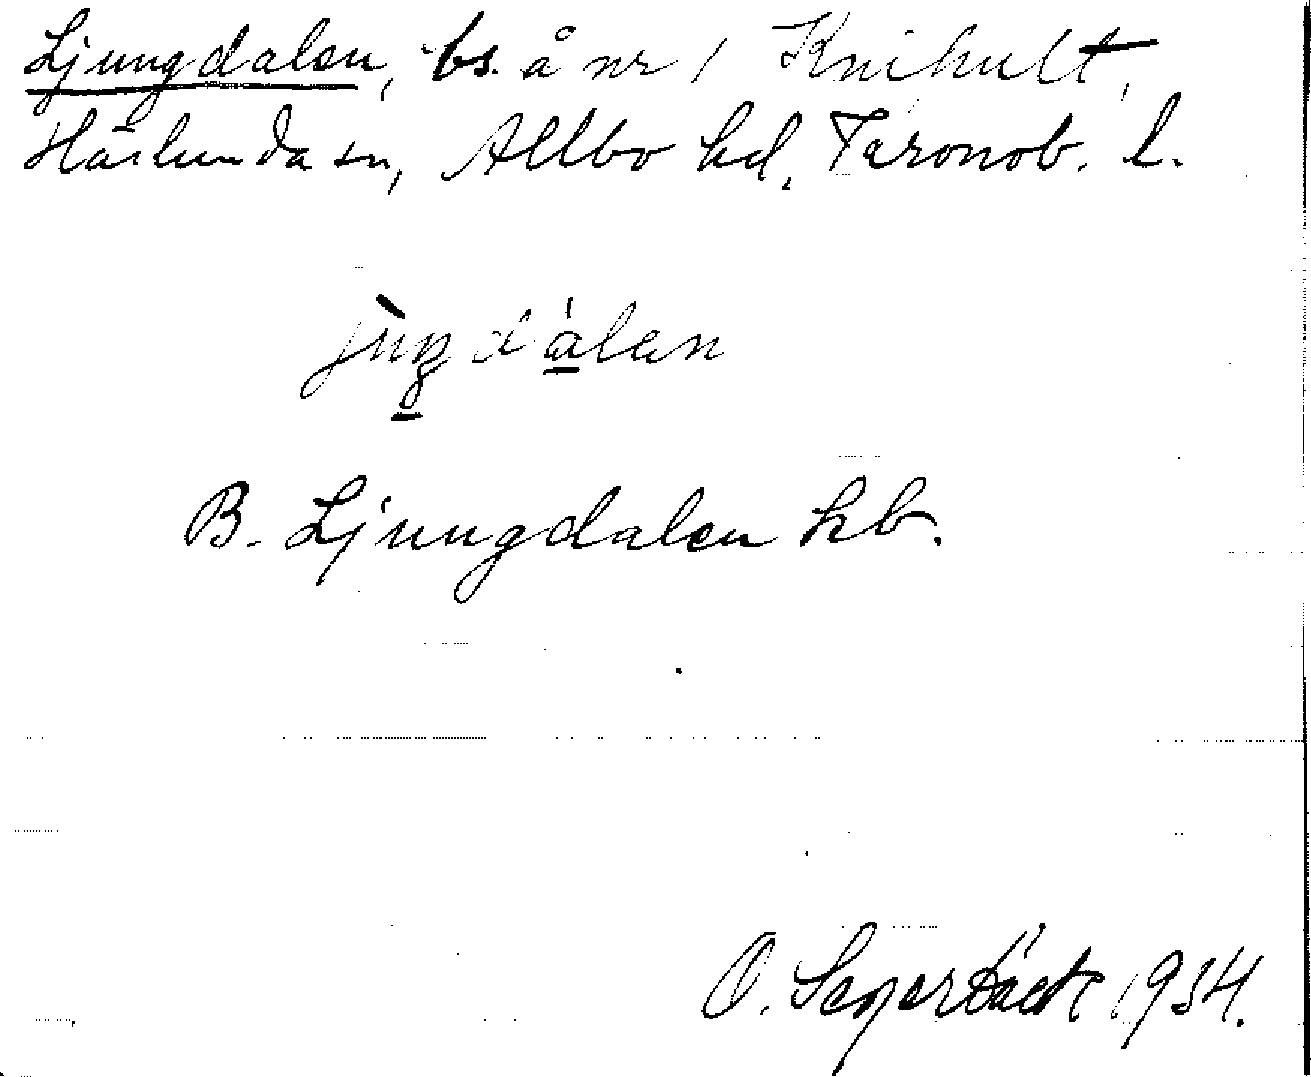 Ljungdalen, bs. å nr 1 Knihult,
Härlunda sn, Allbo hd, Kronob. l.
B. Ljungdalen hb.
O. Segerbäck 1934.